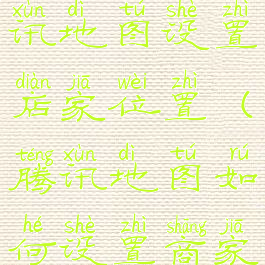 xùn dì tú shè zhì
讯地图设置
diàn jiā wèi zhì
店家位置（
téng xùn dì tú rú
腾讯地图如
hé shè zhì shāng jiā
何设置商家